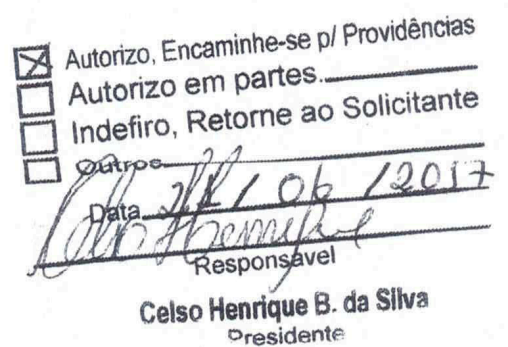 Autorizo, Encaminhe-se p/ Providências
Autorizo em partes.
Indefiro, Retorne ao Solicitante
Outros
Data / 06 / 2017
Celso Henrique
Responsável
Celso Henrique B. da Silva
Presidente